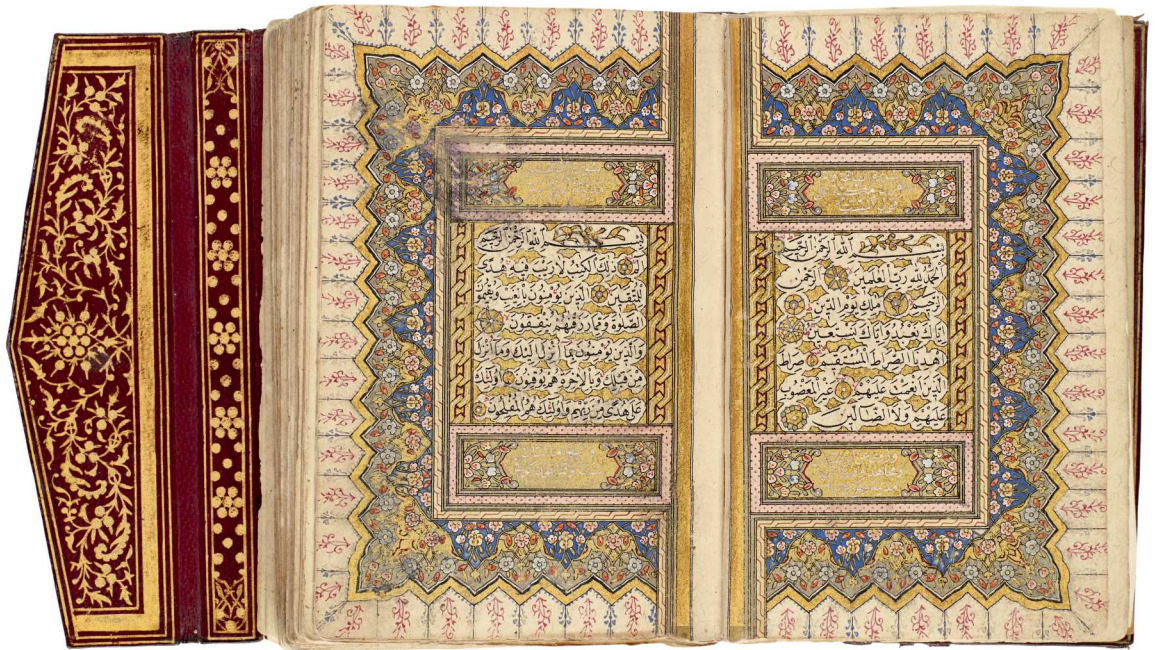 بسم الله الرحمن الرحيم
الحمد لله رب العلمين الرحمن
الرحيم ملك يوم الدين
اياك نعبد واياك نستعين
اهدنا الصراط المستقيم صراط
الذين انعمت عليهم غير المغضوب
عليهم ولا الضالين
بسم الله الرحمن الرحيم
الم ذلك الكتب لا ريب فيه هدى
للمتقين الذين يؤمنون بالغيب ويقيمون
الصلوة ومما رزقنهم ينفقون
والذين يؤمنون بما انزل اليك وما انزل
من قبلك وبالاخرة هم يوقنون اولئك
على هدى من ربهم واولئك هم المفلحون